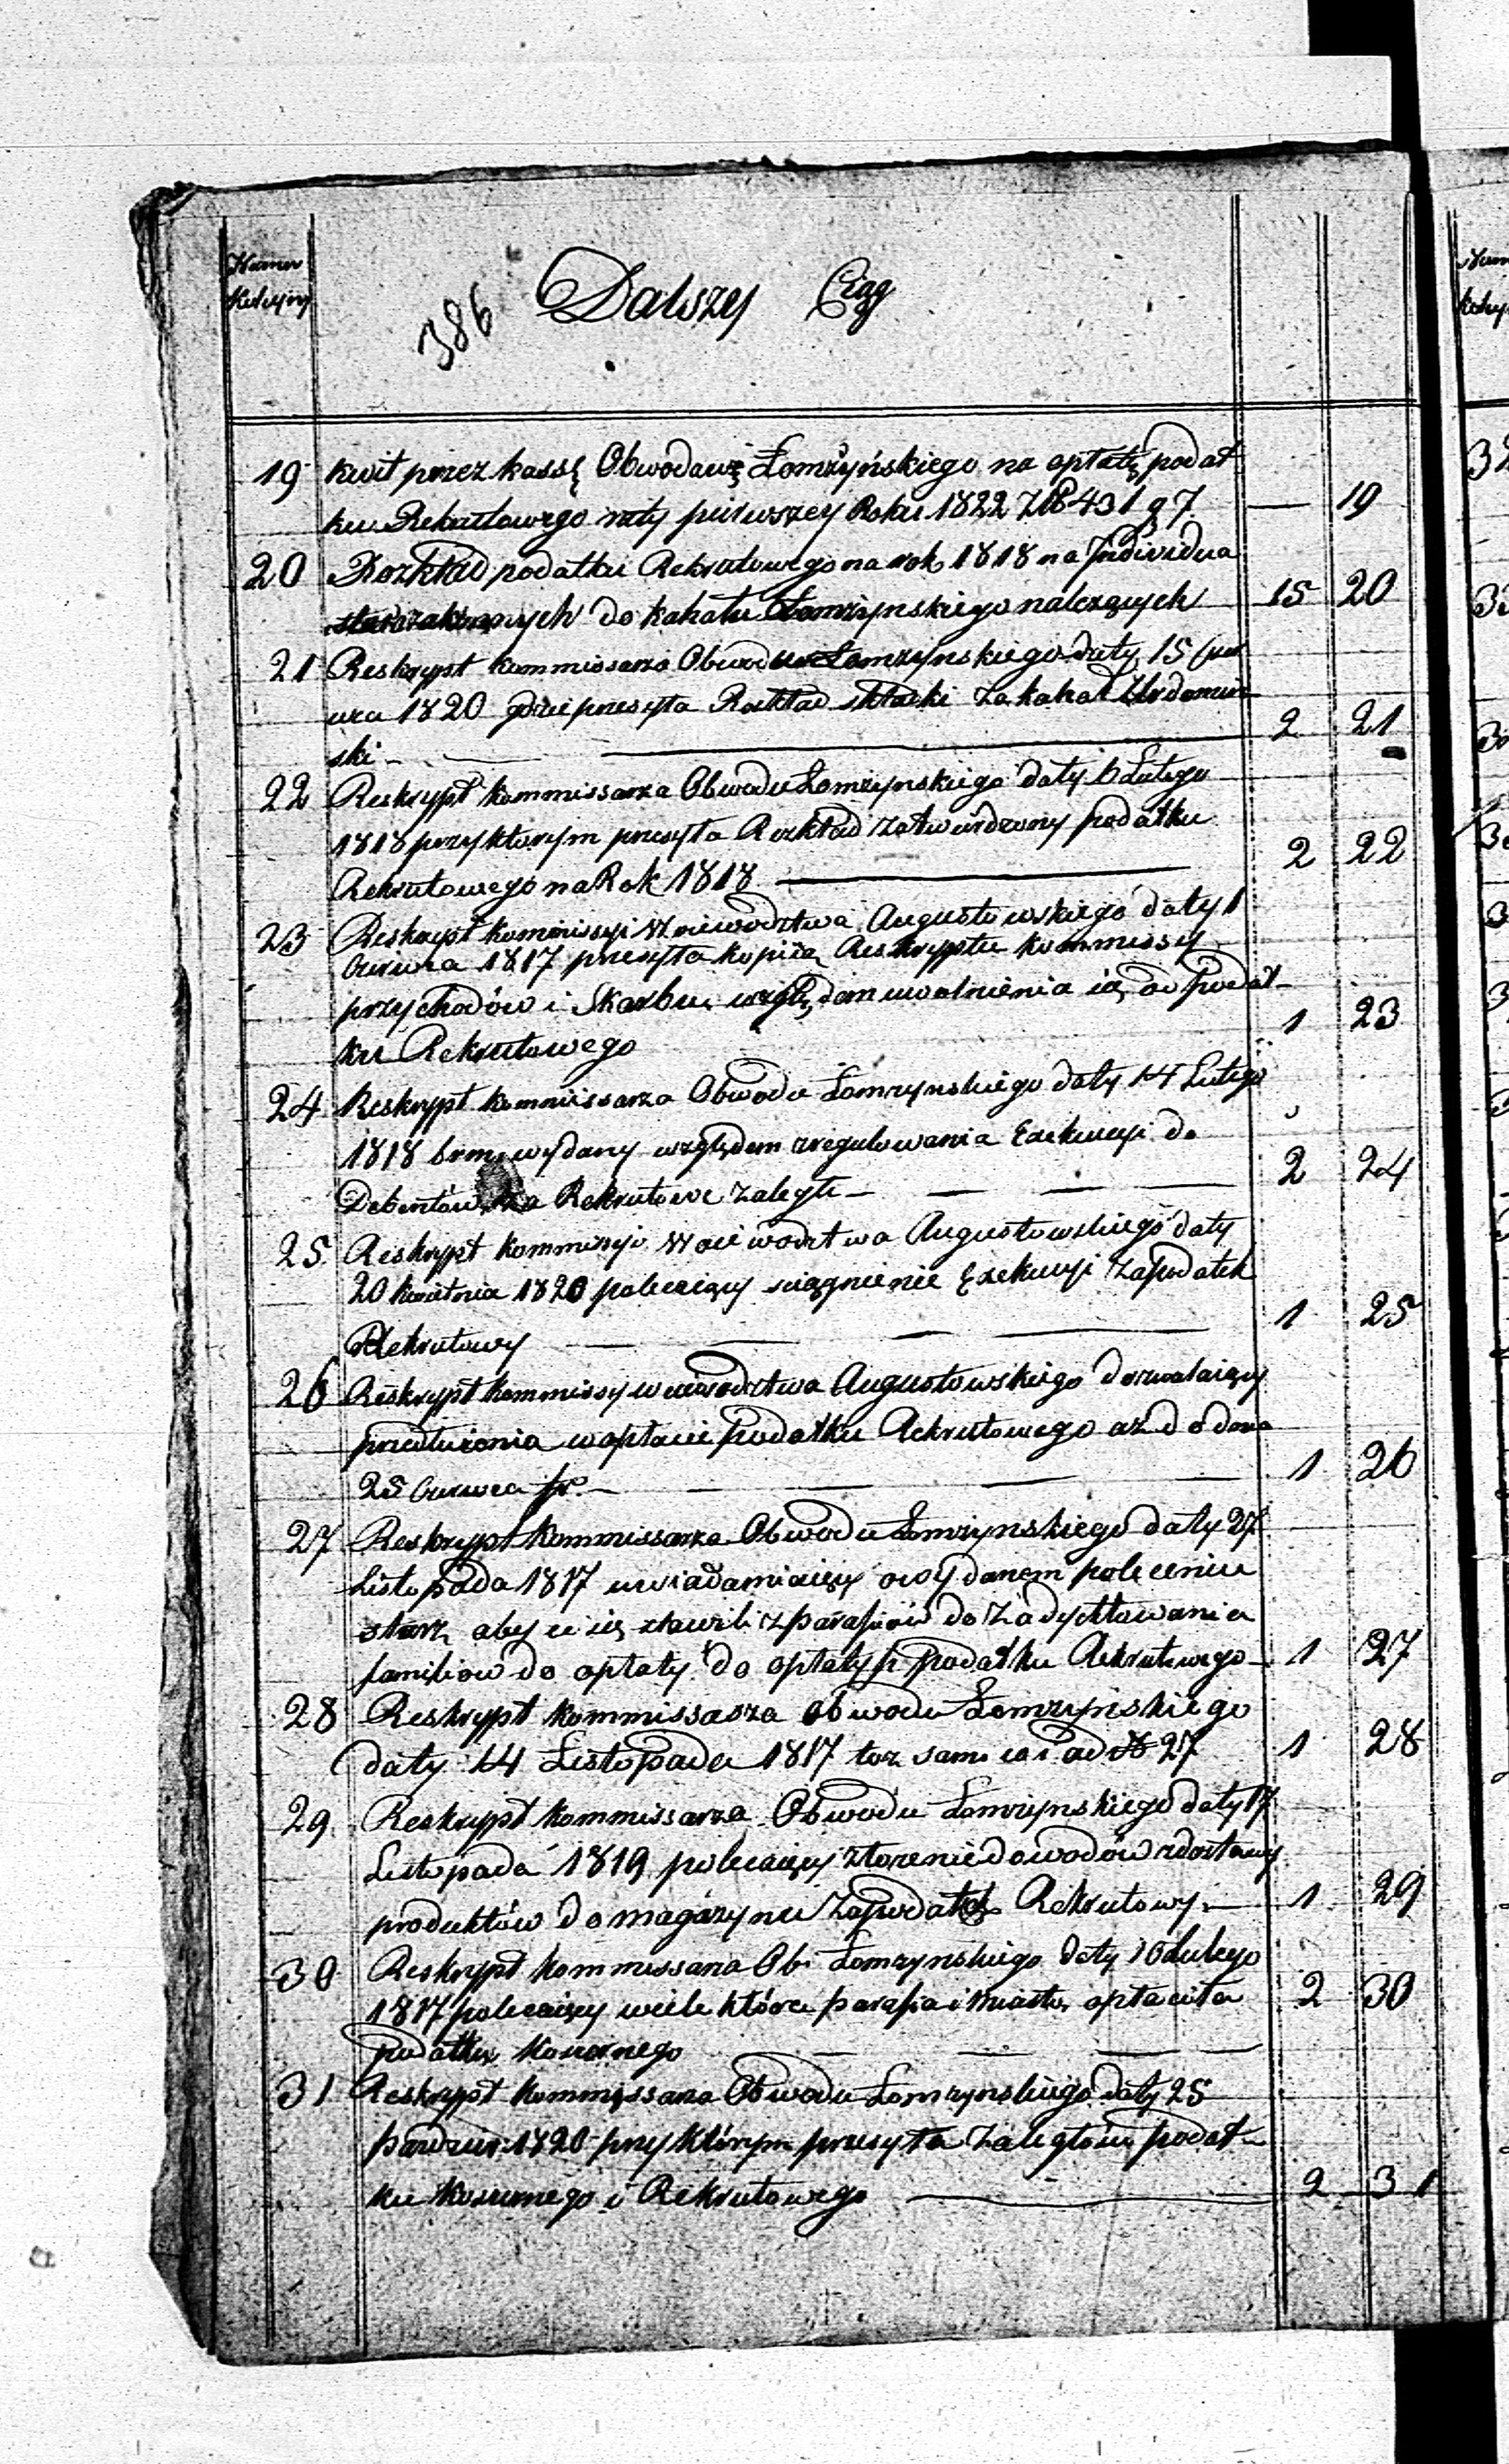 Numer
Kolejny
386 Dalszy Ciąg
19 kwit przez kassę Obwodową Łomżyńskiego na opłatę podat
ku Rekrutowego raty pierwszey Roku 1822 Zł 431 g 7 — 19
20 Rozkład podatku Rekrutowego na rok 1818 na Individua
starozakonnych do kahału Łomżyńskiego należących 15 20
21 Reskrypt kommissarza Obwodu Łomżynskiego daty 15
1820 gdzie przesyła Rozkład składki za kahał
ski — 2 21
22 Reskrypt kommissarza Obwodu Łomżynskiego daty 6 Lutego
1818 przy ktorym przesyła Rozkład zatwierdzony podatku
Rekrutowego na Rok 1818 — 2 22
23 Reskrypt kommissyi Woiewodztwa Augustowskiego daty 1
Czerwca 1817 przesyła kopiią Reskryptu kommissyi
przychodów i Skarbu względem uwolnienia ią od Podat-
ku Rekrutowego 1 23
24 Reskrypt kommissarza Obwodu Łomżynskiego daty 14 Lutego
1818 wydany względem zregulowania Exekucyi do
Debentów za Rekrutowe zaległe — 2 24
25 Reskrypt kommissyi Woiewodztwa Augustowskiego daty
20 kwietnia 1820 polecaiący sciągnienie Exekucyi za podatek
Rekrutowy — 1 25
26 Reskrypt kommissyi woiewodztwa Augustowskiego dozwalaiący
przedłużenia w opłacie podatku Rekrutowego aż do dnia
25 Czerwca — 1 26
27 Reskrypt kommissarza Obwodu Łomżynskiego daty 27
Listopada 1817 uwiadamiaiący o wydanem poleceniu
aby się stawili z parafiów do zadyktowania
familiow do opłaty do opłaty podatku Rekrutowego — 1 27
28 Reskrypt kommissarza obwodu Łomżyńskiego
daty 14 Listopada 1817 toż samo co i ad N 27 1 28
29 Reskrypt kommissarza Obwodu Łomżynskiego daty 17
Listopada 1819 polecaiący złożenie dowodów z dostawy
produktów do magazynu za podatek Rekrutowy — 1 29
30 Reskrypt kommissarza Ob: Łomżynskiego daty 10 Lutego
1817 polecaiący wiele która parafia i miasto opłaciła
podatku koszernego — 2 30
31 Reskrypt kommissarza Obwodu Łomżynskiego daty 25
Paździer: 1820 przy którym przesyła zaległość podat-
ku koszernego i Rekrutowego — 2 31